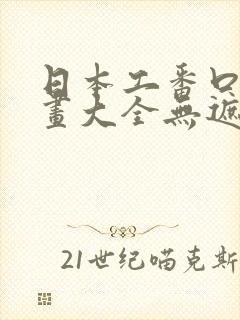 日本工番口
畫大全無遮
21世纪喵克斯